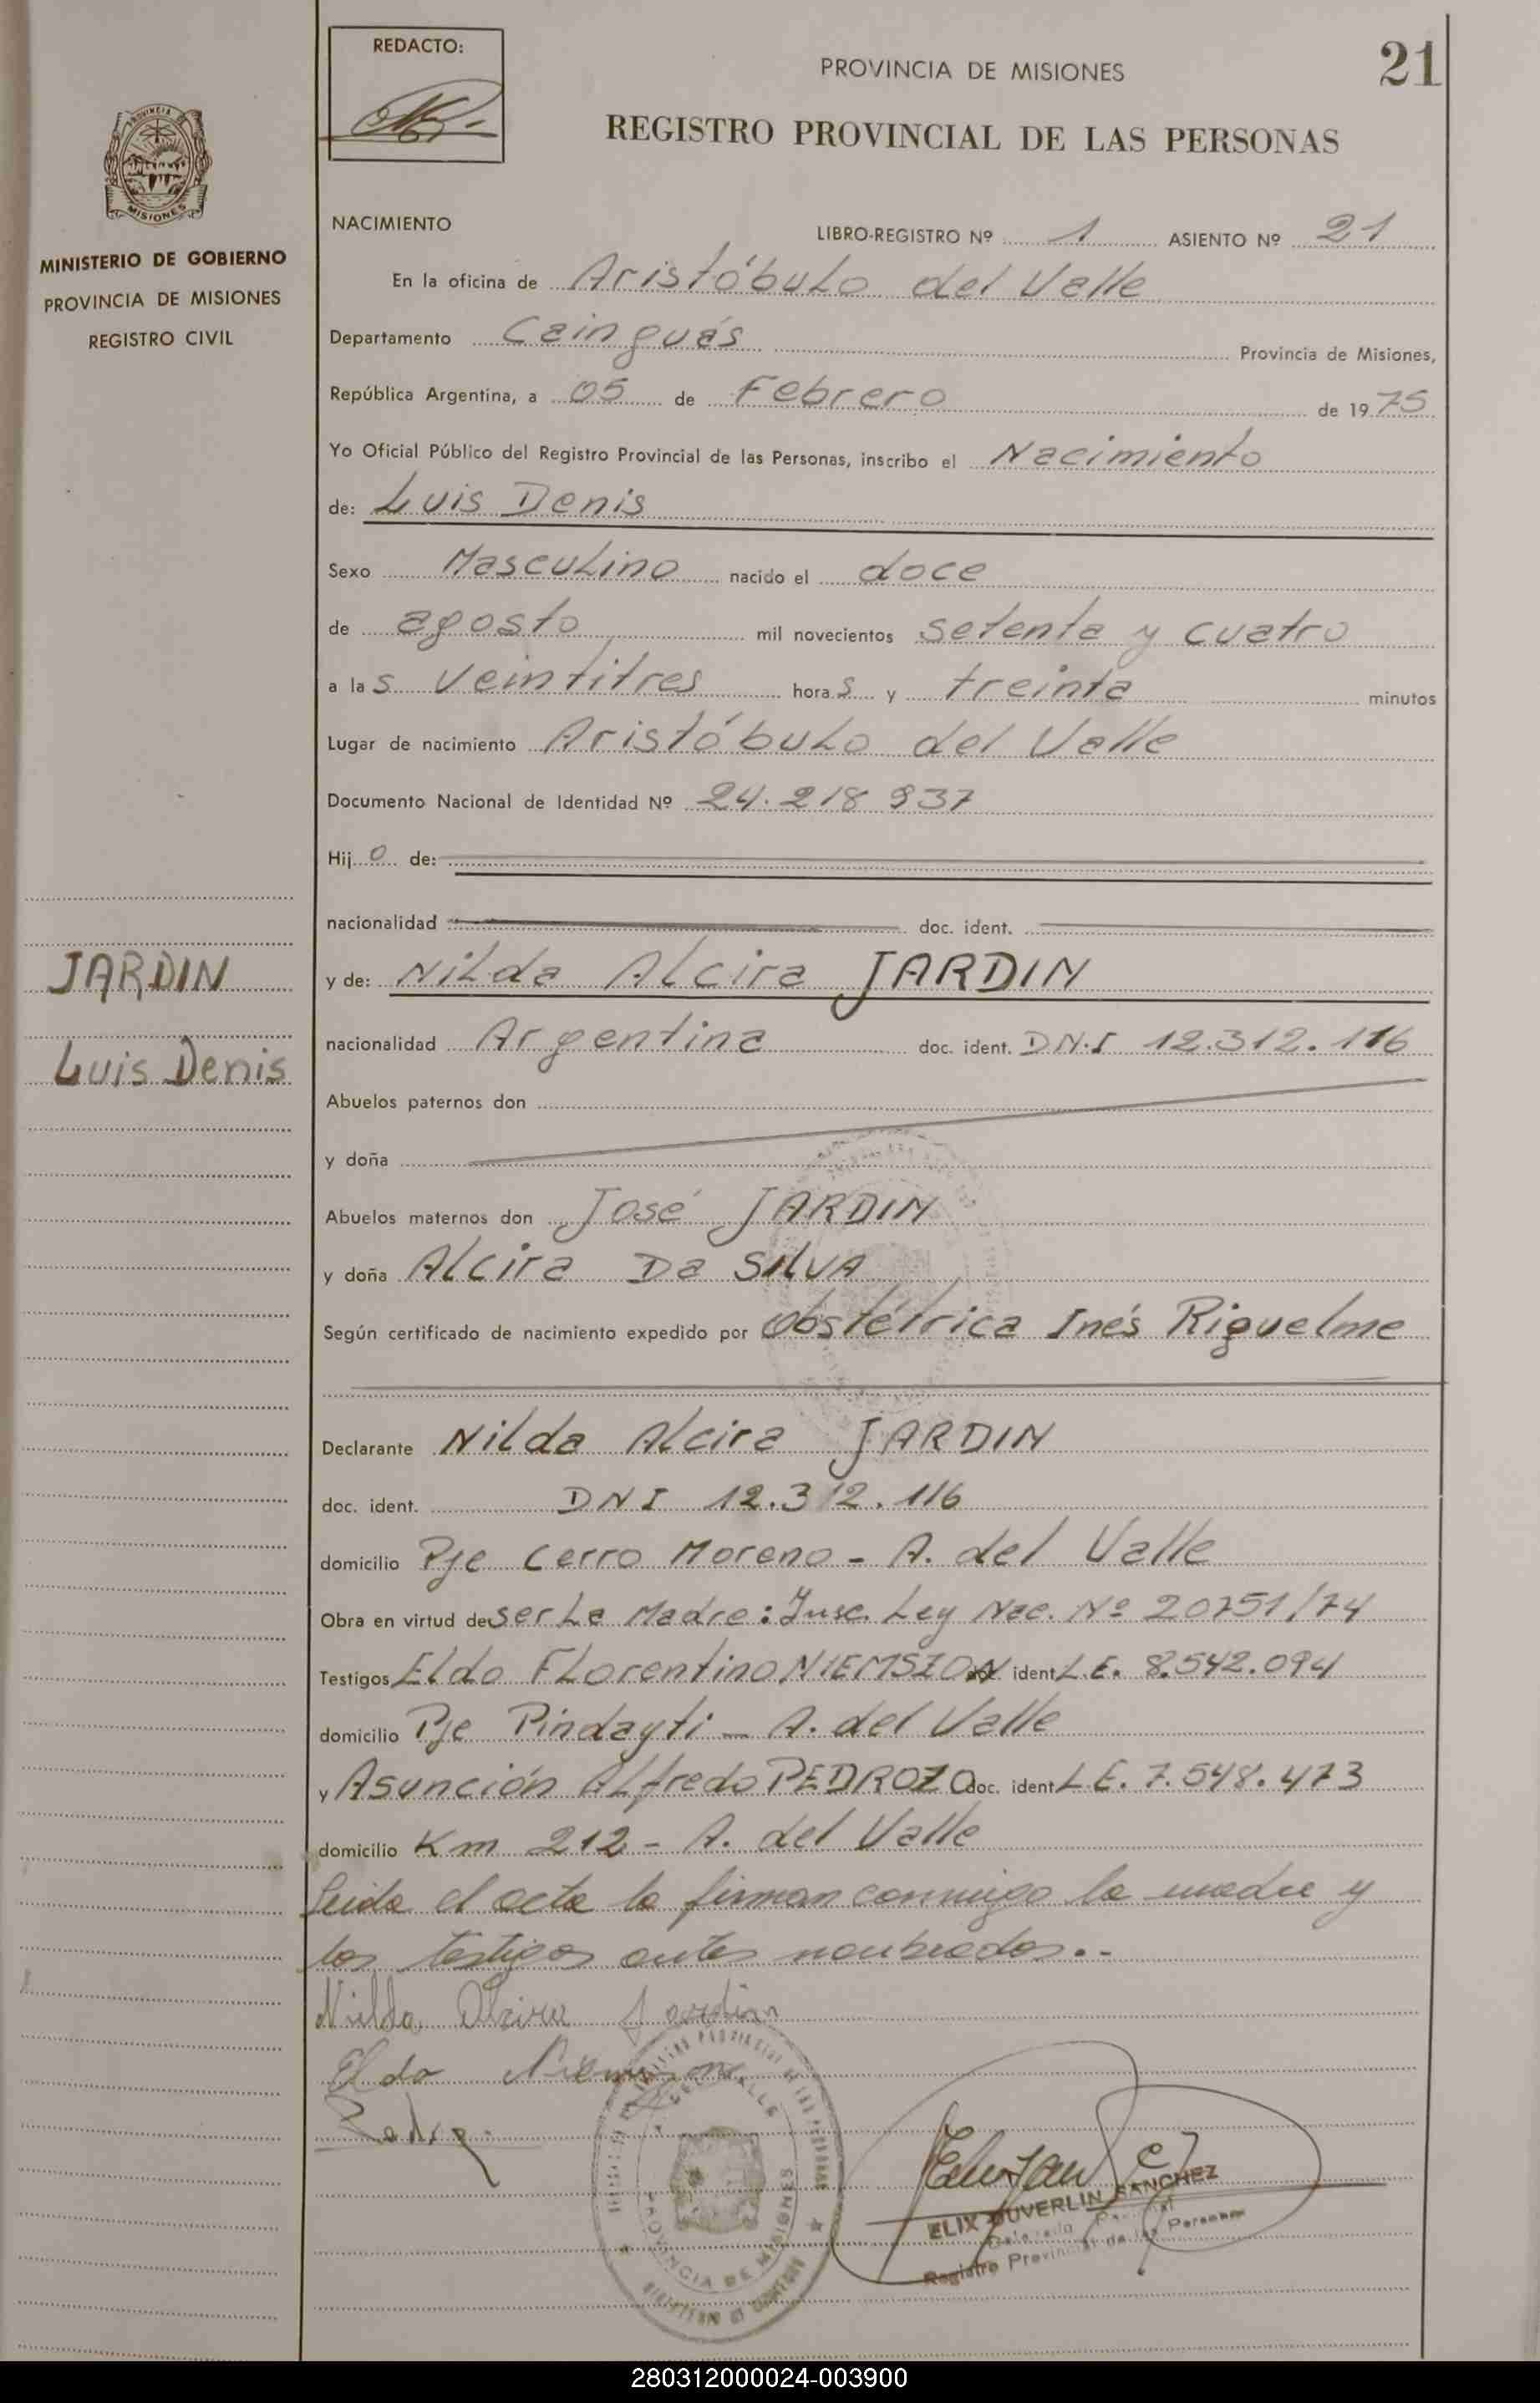 REDACTO:
PROVINCIA DE MISIONES
21
REGISTRO PROVINCIAL DE LAS PERSONAS
MISIONES
MINISTERIO DE GOBIERNO
PROVINCIA DE MISIONES
REGISTRO CIVIL
NACIMIENTO
LIBRO-REGISTRO Nº 1 ASIENTO Nº 21
En la oficina de Aristóbulo del Valle
Departamento Cainguás Provincia de Misiones,
República Argentina, a 05 de Febrero de 1975
Yo Oficial Público del Registro Provincial de las Personas, inscribo el Nacimiento
de: Luis Denis
Sexo Masculino nacido el doce
de agosto mil novecientos setenta y cuatro
a las veintitres horas y treinta minutos
Lugar de nacimiento Aristóbulo del Valle
Documento Nacional de Identidad Nº 24.218 937
Hijo de:
nacionalidad doc. ident.
JARDIN
y de: Nilda Alcira JARDIN
nacionalidad Argentina doc. ident. DN.I 12.312.116
Luis Denis
Abuelos paternos don
y doña
Abuelos maternos don José JARDIN
y doña Alcira Da SILVA
Según certificado de nacimiento expedido por Obstétrica Inés Riquelme
Declarante Nilda Alcira JARDIN
doc. ident. DNI 12.312.116
domicilio Pje Cerro Moreno - A. del Valle
Obra en virtud de ser La Madre: Insc. Ley Nac. Nº 20751/74
Testigos Eldo Florentino NIEMSZON ident L.E. 8.542.094
domicilio Pje Pindayti - A. del Valle
y Asunción Alfredo PEDROZO doc. ident L.E. 7.548.473
domicilio Km 212 - A. del Valle
Leida el acta la firman conmigo la madre y
los testigos antes nombrados..-
Nilda Alcira Jardin
Eldo
ELIX DUVERLIN SANCHEZ
Registro Provincial de las Personas
PROVINCIA DE MISIONES
280312000024-003900